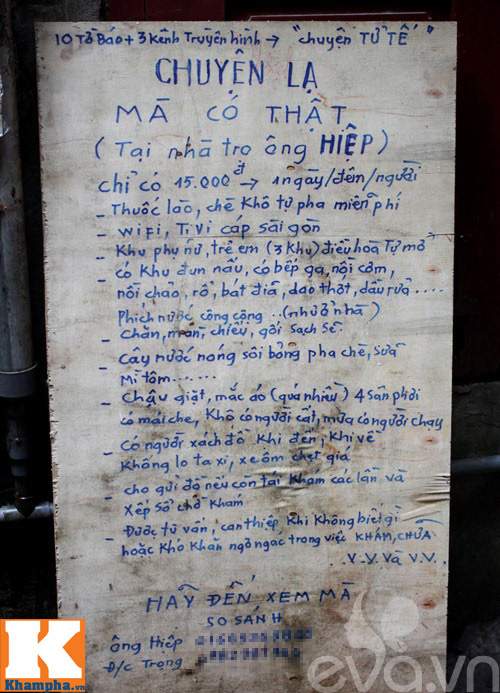 10 Tờ Báo + 3 Kênh Truyền hình → "chuyện TỬ TẾ"
CHUYỆN LẠ
MÀ CÓ THẬT
(Tại nhà trọ ông HIỆP)
chỉ có 15.000đ → 1 ngày/đêm/người
- Thuốc lào, chè khô tự pha miễn phí
- wifi, Ti vi cáp sài gòn
- Khu phụ nữ, trẻ em (3 khu) điều hòa Tự mở
- có khu đun nấu, có bếp ga, nồi cơm,
nồi chảo, rổ, bát đĩa, dao thớt, dầu rửa.....
Phích nước công cộng ..(như ở nhà)
- Chăn, màn, chiếu, gối sạch sẽ.
- Cây nước nóng sôi bỏng pha chè, sữa
mì tôm.......
- Chậu giặt, mắc áo (quá nhiều) 4 sân phơi
có mái che, khô có người cất, mưa có người chạy
- Có người xách đồ khi đến, khi về
không lo ta xi, xe ôm chẹt giá
- cho gửi đồ nếu còn tái khám các lần và
xếp sổ chờ khám
- Được tư vấn, can thiệp khi không biết gì
hoặc khó khăn ngơ ngác trong việc KHÁM, CHỮA
.V.V. Và V.V..
HÃY ĐẾN XEM MÀ
SO SÁNH
ông Hiệp
Đ/c Trọng
K
Khampha.vn
eva.vn